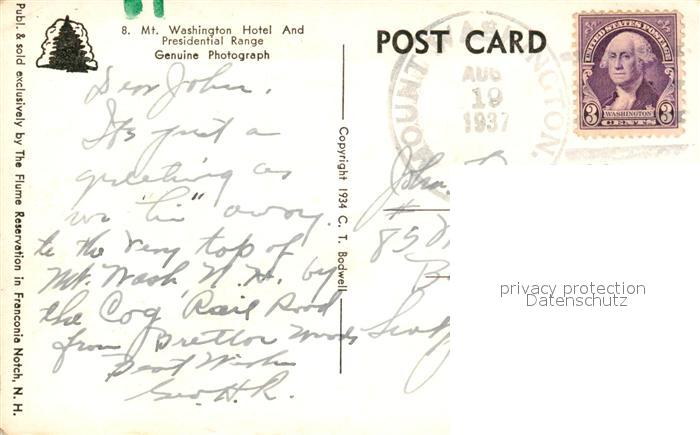 8. Mt. Washington Hotel And
Presidential Range
Genuine Photograph
POST CARD
MOUNT WASHINGTON.
AUG
19
1937
UNITED STATES POSTAGE
3 WASHINGTON 3
CENTS
Publ. & sold exclusively by The Flume Reservation in Franconia Notch, N. H.
Copyright 1934 C. T. Bodwell
Dear John,
Its just a
greeting as
we "hi" away
to the very top of
Mt. Wash. N. H. by
the Cog Rail Road
from Bretton Woods
Best Wishes
Geo. H. R.
John
#
85
B
privacy protection
Datenschutz